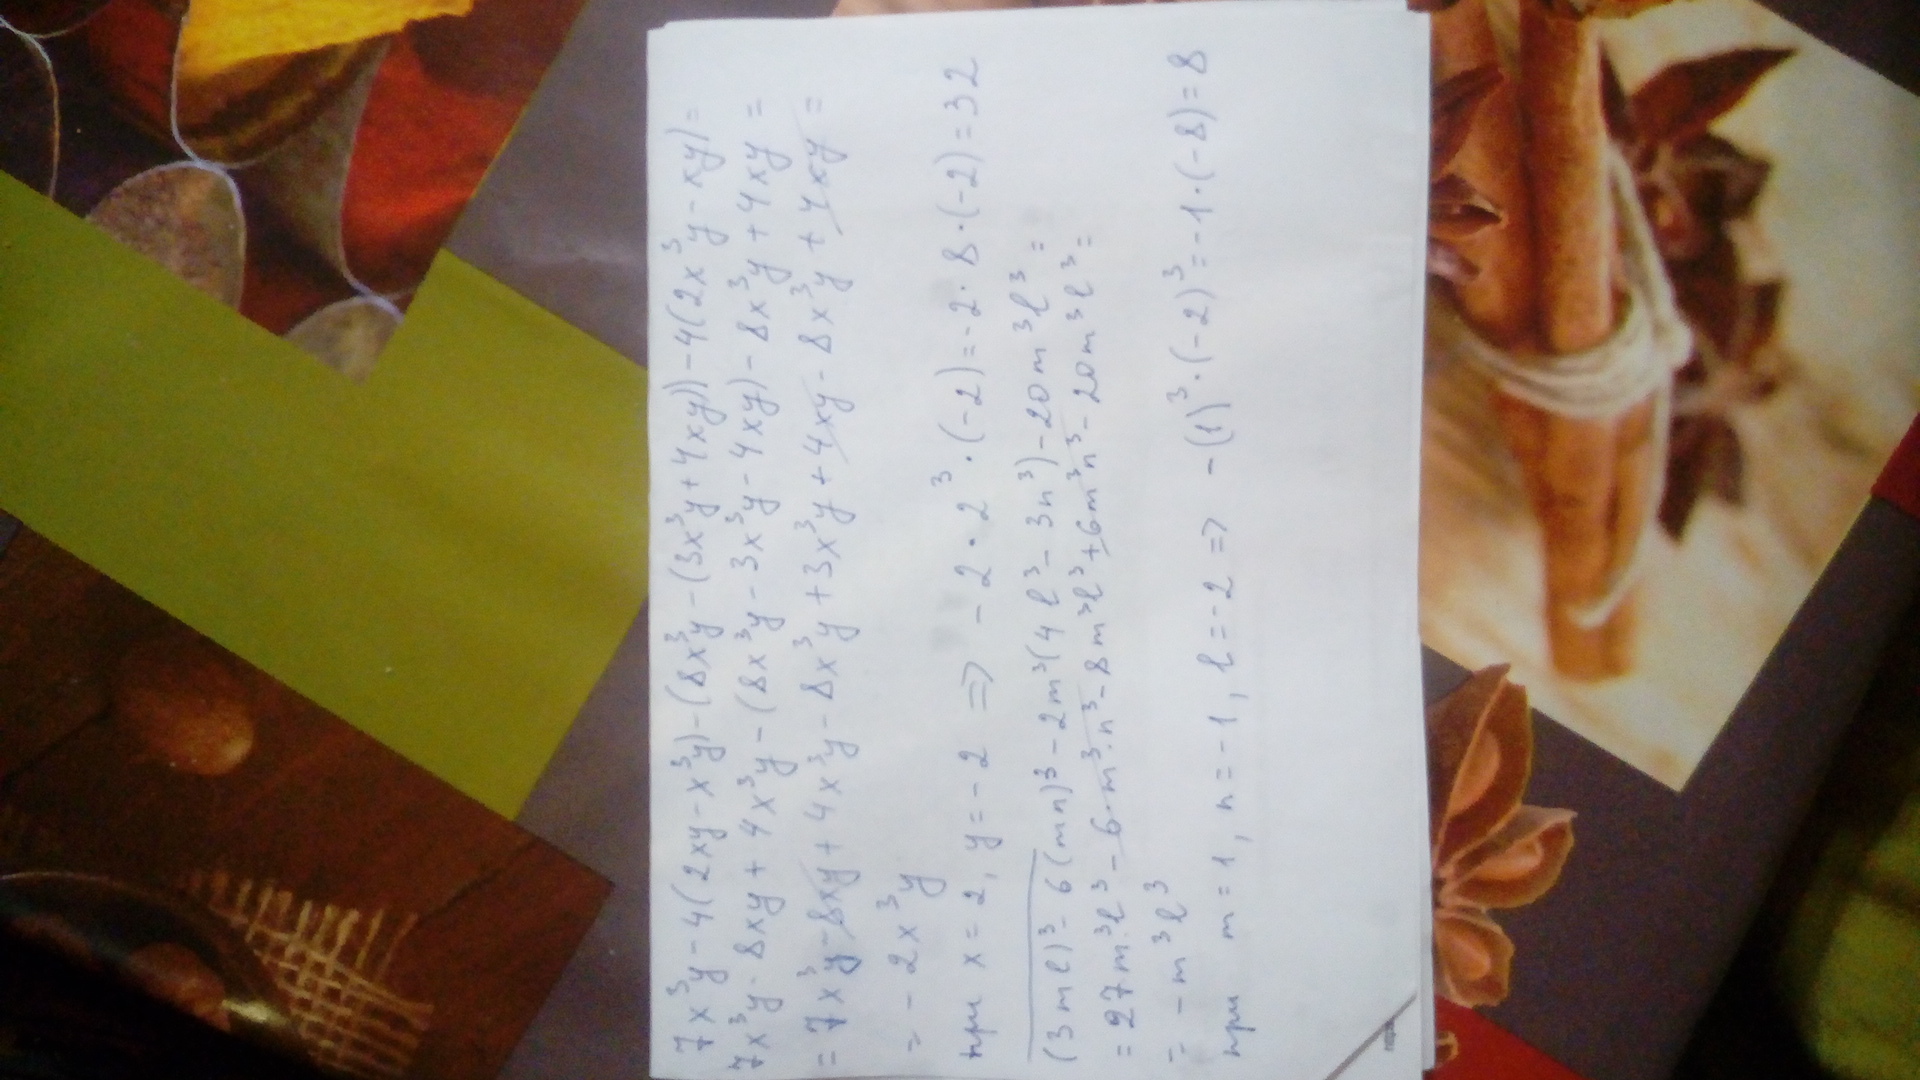 7x³y-4(2xy-x³y)-(8x³y-(3x³y+4xy))-4(2x³y-xy)=
7x³y-8xy+4x³y-(8x³y-3x³y-4xy)-8x³y+4xy=
=7x³y-8xy+4x³y-8x³y+3x³y+4xy-8x³y+4xy=
=-2x³y
при x=2, y=-2 => -2·2³·(-2)=-2·8·(-2)=32
(3ml)³-6(mn)³-2m³(4l³-3n³)-20m³l³=
=27m³l³-6·m³·n³-8m³l³+6m³n³-20m³l³=
=-m³l³
при m=1, n=-1, l=-2 => -(1)³·(-2)³=-1·(-8)=8